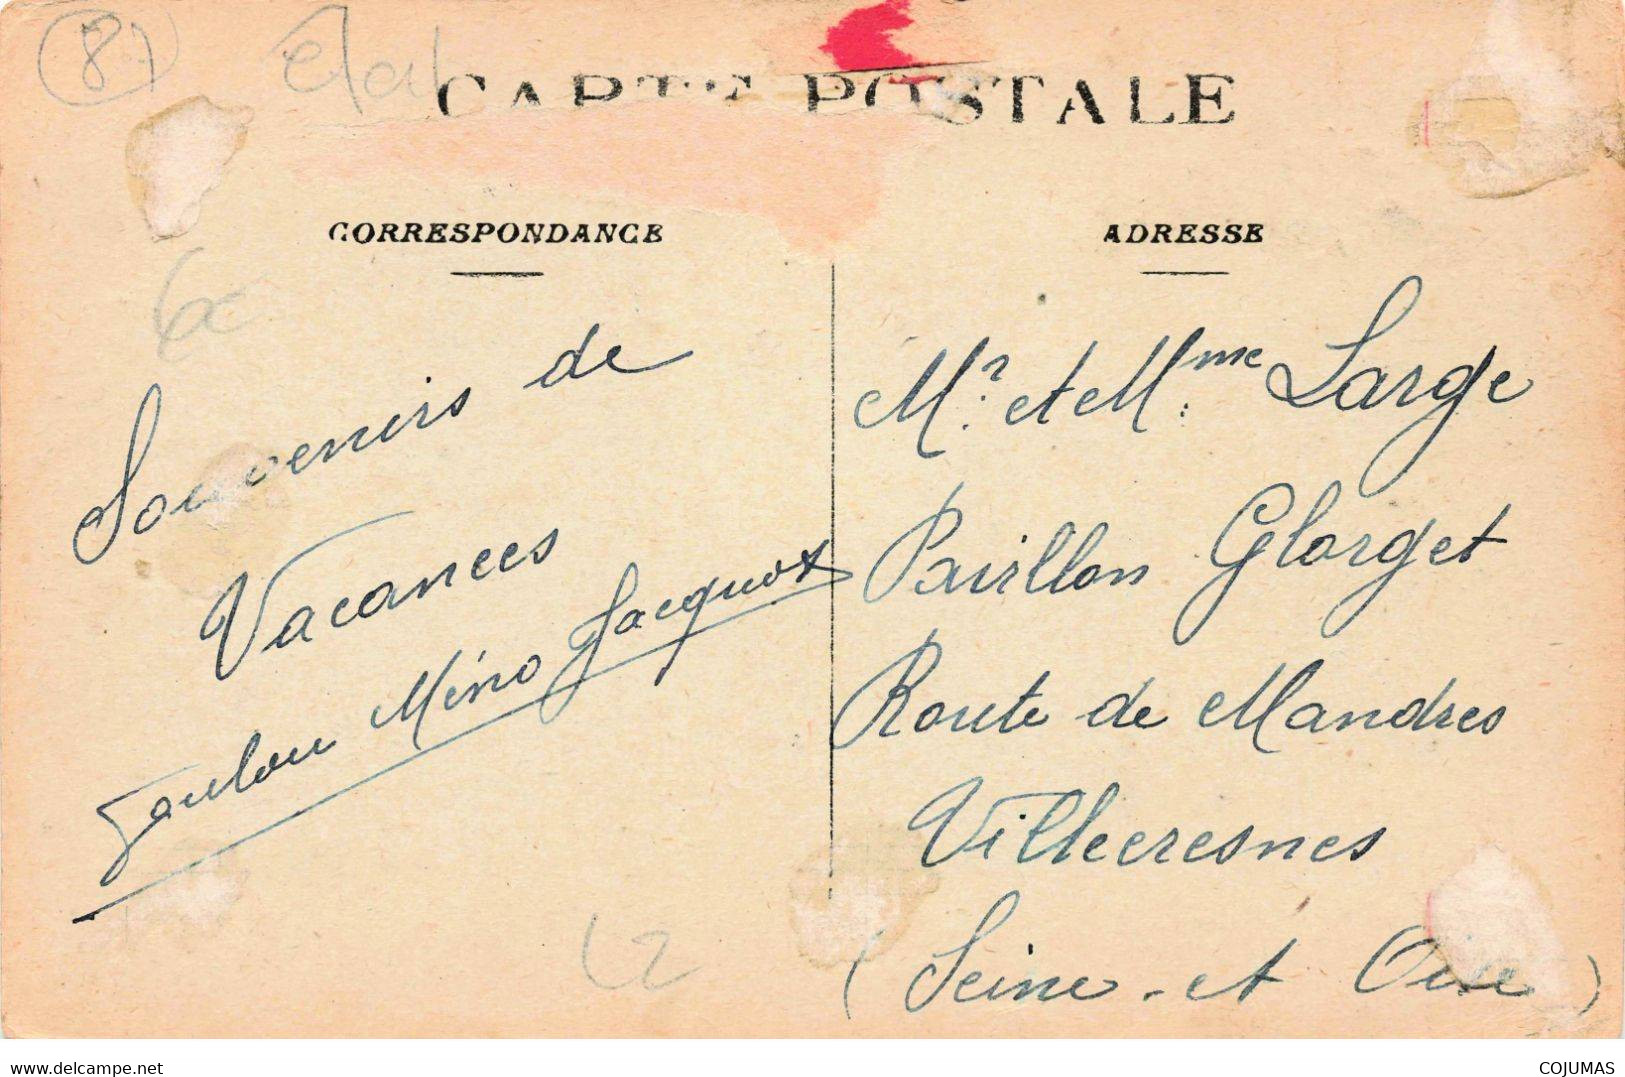 87
état
CARTE POSTALE
CORRESPONDANCE
Souvenirs de
Vacances
Toulou Mino Jacquot
ADRESSE
Mr. et Mme Large
Pavillon Glorget
Route de Mandres
Villecresnes
(Seine-et Oise)
www.delcampe.net
COJUMAS